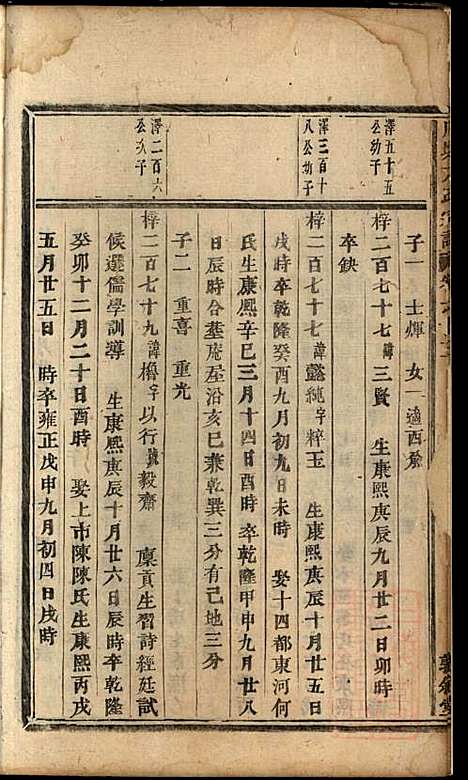 澤五十五
公幼子
子一 士煇 女一適西𡊠
梓二百七十七諱三賢 生康熙庚辰九月廿二日卯時
卒缺
澤三百十
八公幼子
梓二百七十七諱懿純字粹玉 生康熙庚辰十月廿五日
戌時卒乾隆癸酉九月初九日未時 娶十四都東河何
氏生康熙辛巳三月十四日酉時 卒乾隆甲申九月廿八
日辰時合墓庵屋沿亥巳兼乾巽三分有己地三分
子二 重喜 重光
澤二百六
公次子
梓二百七十九諱櫓字以行號毅齋 廩貢生習詩經廷試
候選儒學訓導 生康熙庚辰十月廿六日辰時卒乾隆
癸卯十二月二十日酉時 娶上市陳陳氏生康熙丙戌
五月廿五日 時卒雍正戊申九月初四日戌時